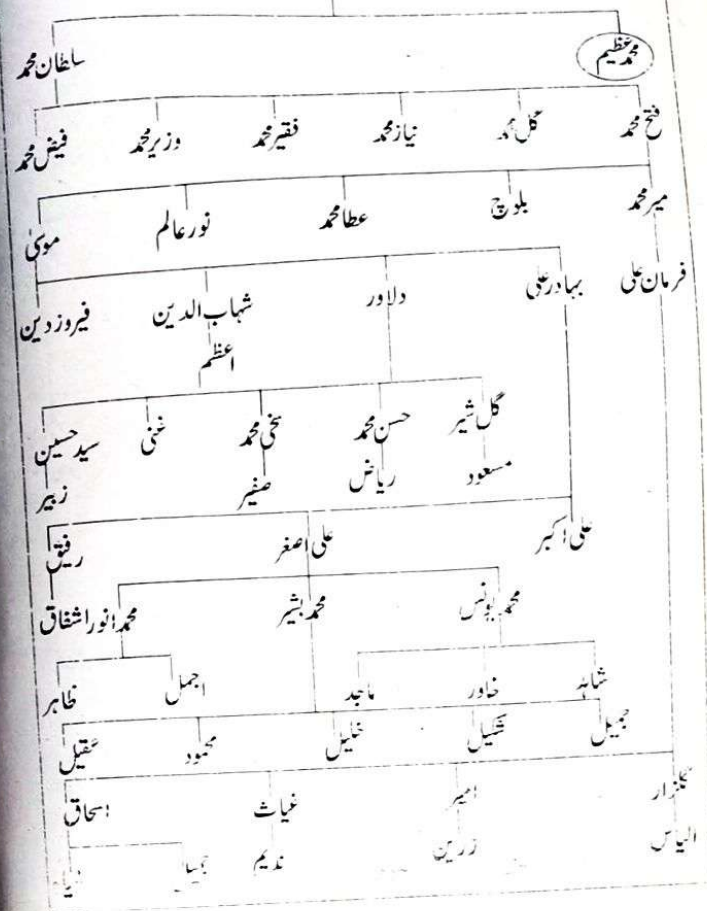 محمد عظیم سلطان محمد
فتح محمد گل محمد نیاز محمد فقیر محمد وزیر محمد فیض محمد
میر محمد بلوچ عطا محمد نور عالم موسیٰ
فرمان علی بہادر علی دلاور شہاب الدین فیروز دین
اعظم
گل شیر حسن محمد سخی محمد غنی سید حسین
مسعود ریاض صفیر زبیر
علی اکبر علی اصغر رفیق
محمد یونس محمد بشیر محمد انور اشفاق
شاہد خاور ماجد اجمل ظاہر
جمیل شکیل خلیل محمود عقیل
گلزار امیر غیاث اسحاق
الیاس زرین ندیم جمیل